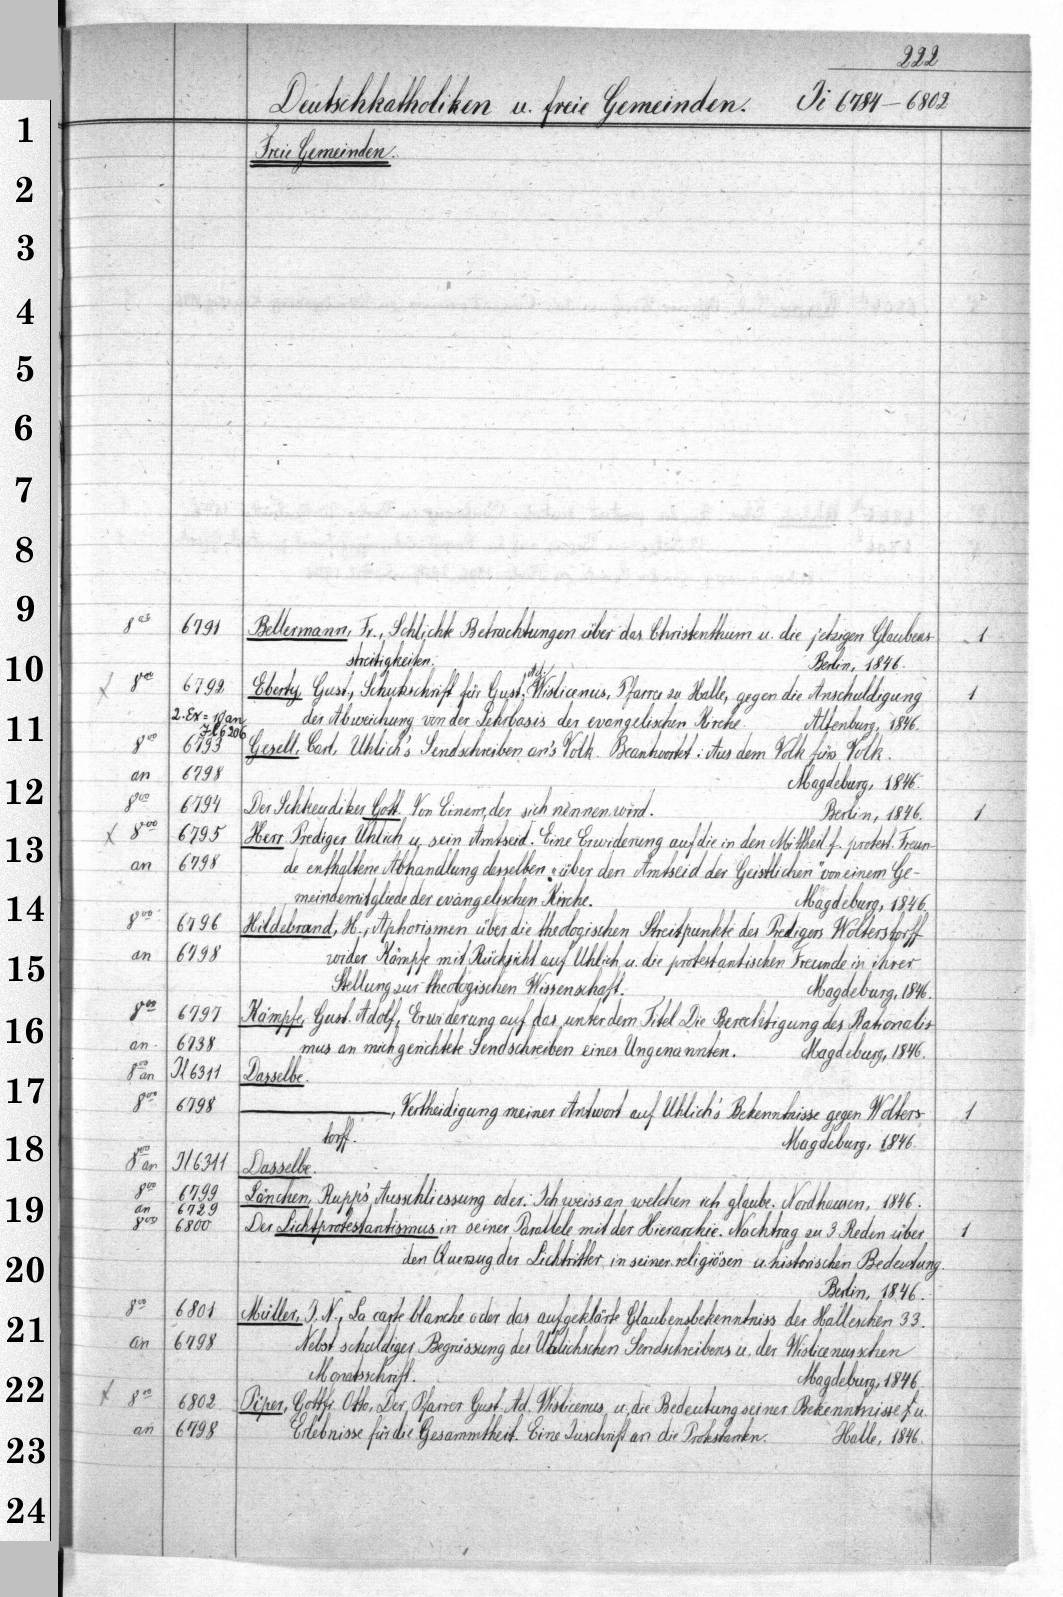 222
Deutschkatholiken u. freie Gemeinden. Ii 6784–6802
Freie Gemeinden.
1
2
3
4
5
6
7
8
9
10
11
12
13
14
15
16
17
18
19
20
21
22
23
24
8vo 6791 Bellermann, Fr., Schlichte Betrachtungen über das Christenthum u. die jetzigen Glaubens- 1
streitigkeiten. Berlin, 1846.
8vo 6792 Eberty, Gust., Schutzschrift für Gust. Ad. Wislicenus, Pfarrer zu Halle, gegen die Anschuldigung 1
2. Ex = an 6206 der Abweichung von der Lehrbasis der evangelischen Kirche. Altenburg, 1846.
8vo 6793 Gesell, Carl, Uhlich's Sendschreiben an's Volk. Beantwortet: Aus dem Volk fürs Volk.
an 6798 Magdeburg, 1846.
8vo 6794 Der Schkeudizer Gott. Von Einem, der sich nennen wird. Berlin, 1846. 1
x 8vo 6795 Herr Prediger Uhlich u. sein Amtseid. Eine Erwiderung auf die in den Mittheil. f. protest. Freun-
an 6798 de enthaltene Abhandlung desselben „über den Amtseid der Geistlichen" von einem Ge-
meindemitgliede der evangelischen Kirche. Magdeburg, 1846.
8vo 6796 Hildebrand, H., Aphorismen über die theologischen Streitpunkte des Predigers Wolterstorff
an 6798 wider Kämpfe mit Rücksicht auf Uhlich u. die protestantischen Freunde in ihrer
Stellung zur theologischen Wissenschaft. Magdeburg, 1846.
8vo 6797 Kämpfe, Gust. Adolf, Erwiderung auf das unter dem Titel Die Berechtigung des Rationalis-
an 6738 mus an mich gerichtete Sendschreiben eines Ungenannten. Magdeburg, 1846.
8vo an Il 6311 Dasselbe.
8vo 6798 ———, Vertheidigung meiner Antwort auf Uhlich's Bekenntnisse gegen Wolters- 1
torff. Magdeburg, 1846.
8vo an Il 6311 Dasselbe.
8vo 6799 Länchen, Rupp's Ausschliessung oder: Ich weiss an welchen ich glaube. Nordhausen, 1846.
an 6729
8vo 6800 Der Lichtprotestantismus in seiner Parallele mit der Hierarchie. Nachtrag zu 3 Reden über 1
den Querzug der Lichtritter in seiner religiösen u. historischen Bedeutung.
Berlin, 1846.
8vo 6801 Müller, J. N., La carte blanche oder das aufgeklärte Glaubensbekenntniss der Halleschen 33.
an 6798 Nebst schuldiger Begrüssung des Uhlichschen Sendschreibens u. der Wislicenusschen
Monatsschrift. Magdeburg, 1846.
x 8vo 6802 Piper, Gottfr. Otto, Der Pfarrer Gust. Ad. Wislicenus u. die Bedeutung seiner Bekenntnisse u.
an 6798 Erlebnisse für die Gesammtheit. Eine Zuschrift an die Protestanten. Halle, 1846.